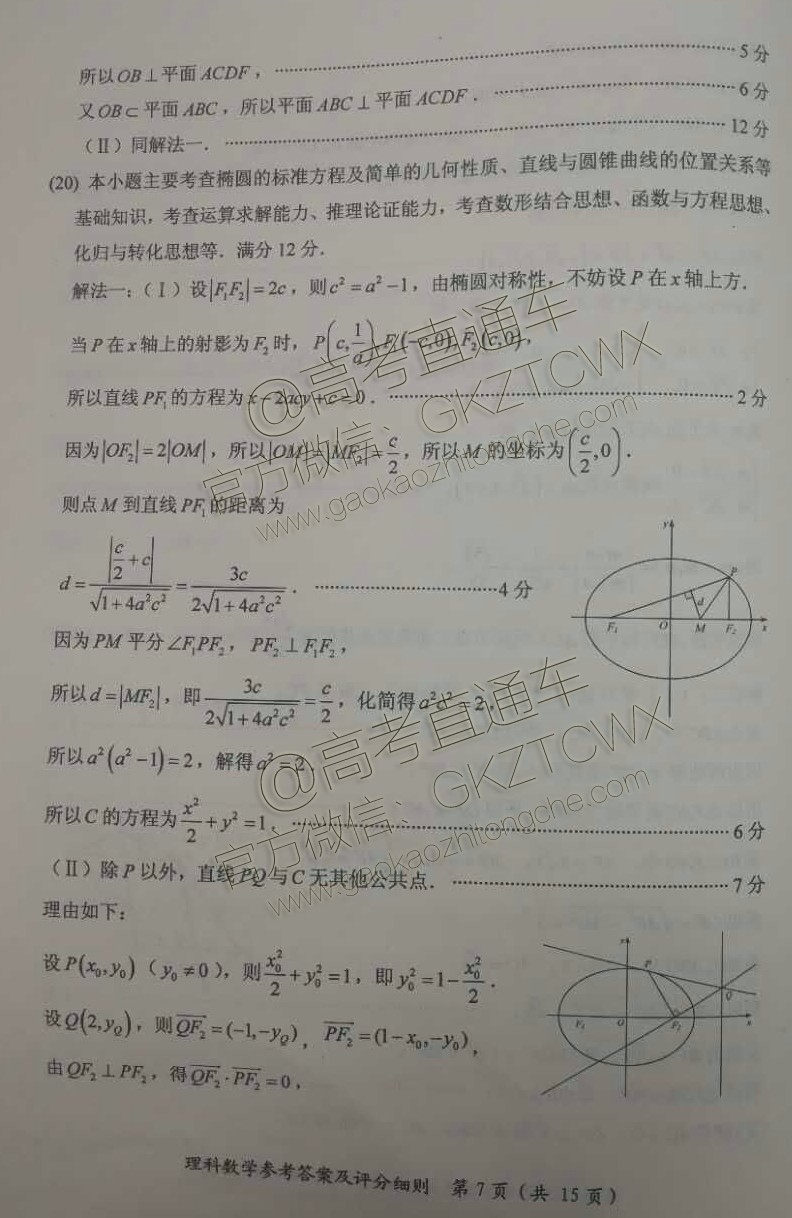 所以OB⊥平面ACDF，……5分
又OB⊂平面ABC，所以平面ABC⊥平面ACDF．……6分
（Ⅱ）同解法一．……12分
(20) 本小题主要考查椭圆的标准方程及简单的几何性质、直线与圆锥曲线的位置关系等
基础知识，考查运算求解能力、推理论证能力，考查数形结合思想、函数与方程思想、
化归与转化思想等．满分12分．
解法一：（Ⅰ）设|F₁F₂|=2c，则c²=a²−1，由椭圆对称性，不妨设P在x轴上方．
当P在x轴上的射影为F₂时，P(c,1/a)，F₁(−c,0)，F₂(c,0)，
所以直线PF₁的方程为x−2acy+c=0．……2分
因为|OF₂|=2|OM|，所以|OM|=|MF₂|=c/2，所以M的坐标为(c/2,0)．
则点M到直线PF₁的距离为
d=|c/2+c|/√(1+4a²c²)=3c/(2√(1+4a²c²))．……4分
因为PM平分∠F₁PF₂，PF₂⊥F₁F₂，
所以d=|MF₂|，即3c/(2√(1+4a²c²))=c/2，化简得a²c²=2，
所以a²(a²−1)=2，解得a²=2．
所以C的方程为x²/2+y²=1．……6分
（Ⅱ）除P以外，直线PQ与C无其他公共点．……7分
理由如下：
设P(x₀,y₀)（y₀≠0），则x₀²/2+y₀²=1，即y₀²=1−x₀²/2．
设Q(2,y_Q)，则QF₂=(−1,−y_Q)，PF₂=(1−x₀,−y₀)，
由QF₂⊥PF₂，得QF₂·PF₂=0，
y
P
d
F₁
O
M
F₂
x
y
P
Q
F₁
O
F₂
x
@高考直通车
官方微信：GKZTCWX
www.gaokaozhitongche.com
@高考直通车
官方微信：GKZTCWX
www.gaokaozhitongche.com
理科数学参考答案及评分细则 第7页（共 15页）